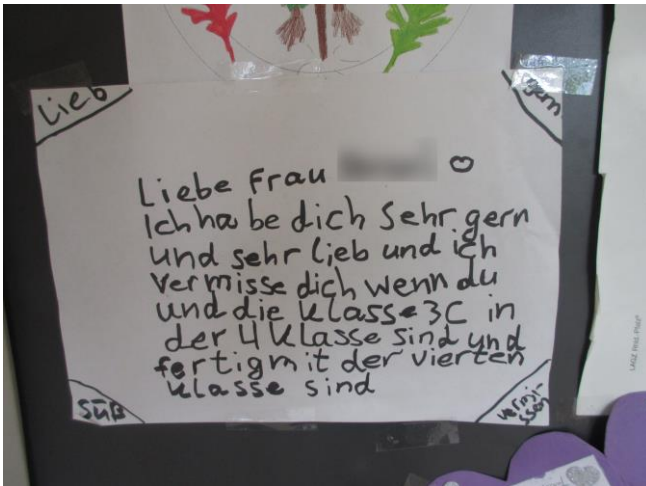 Lieb
gern
Liebe Frau
Ich habe dich Sehr gern
und sehr lieb und ich
vermisse dich wenn du
und die Klasse 3C in
der 4 Klasse sind und
fertig mit der vierten
Klasse sind
süß
vermi-
ssen